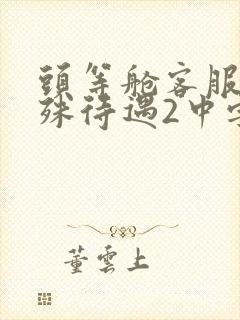 頭等舱客服
殊待遇2中字
董雲上